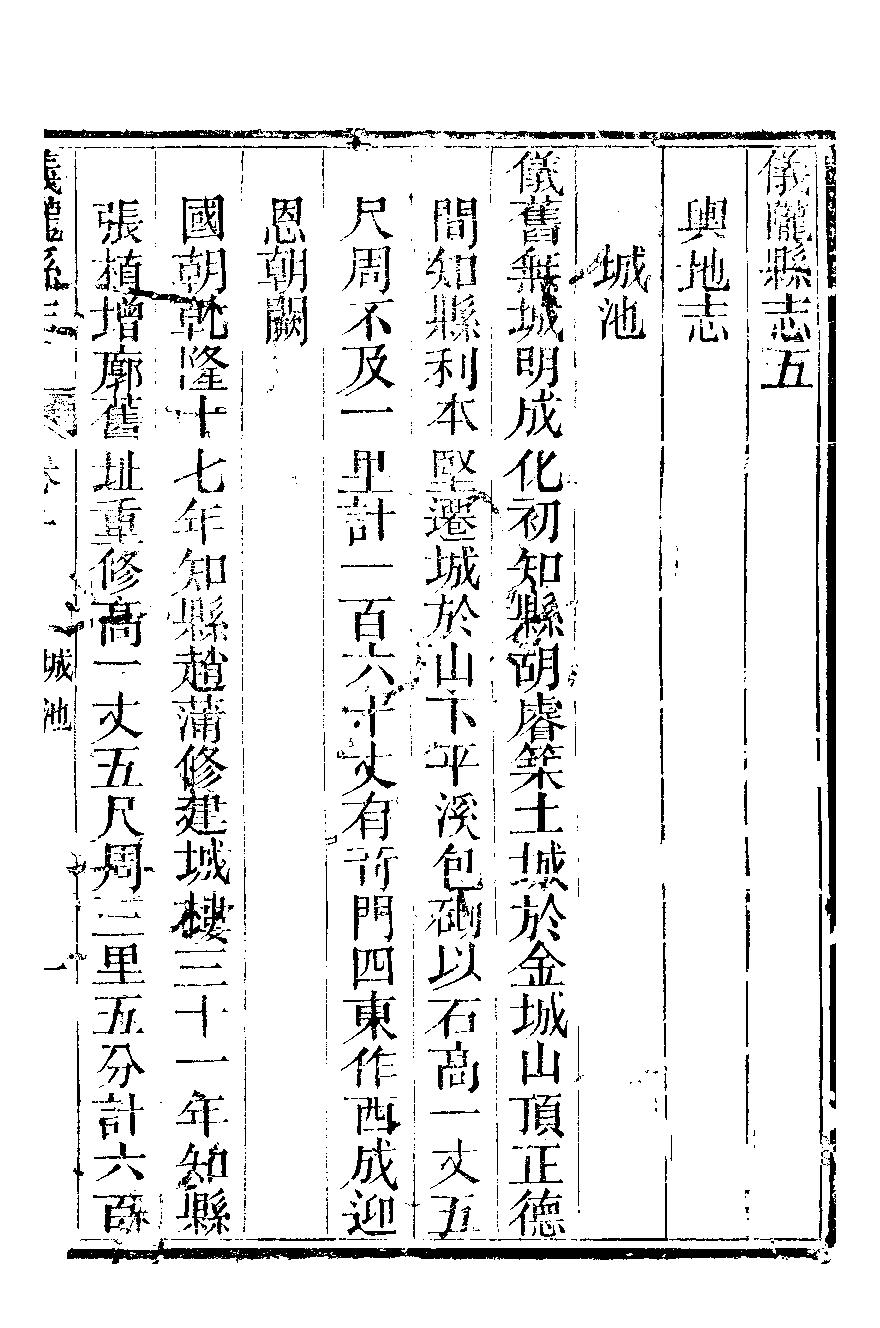 儀隴縣志五
輿地志
城池
儀舊無城明成化初知縣胡睿築土城於金城山頂正德
間知縣利本堅遷城於山下平溪包砌以石高一丈五
尺周不及一里計一百六十丈有奇門四東作西成迎
恩朝闕
國朝乾隆十七年知縣趙蒲修建城樓三十一年知縣
張植增廓舊址重修高一丈五尺周三里五分計六百
城池 一